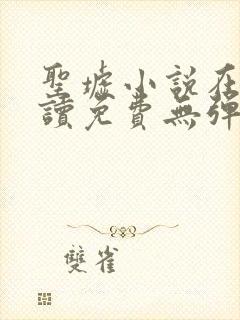 聖墟小說在
讀免費無彈
雙雀